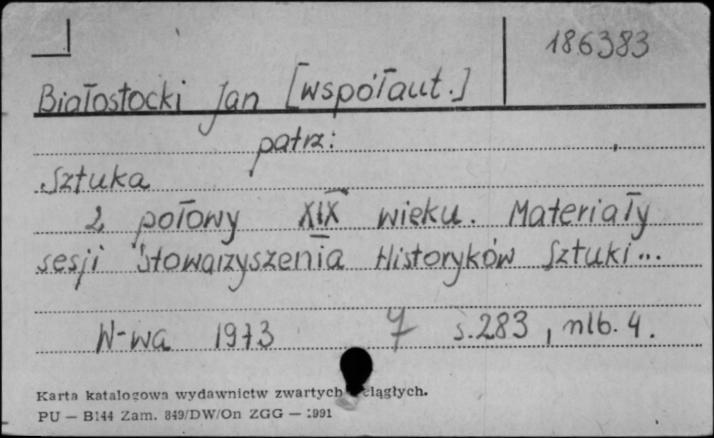 186383
Białostocki Jan [współaut.]
patrz:
Sztuka
2 połowy XIX wieku. Materiały
sesji Stowarzyszenia Historyków Sztuki...
W-wa 1973 s.283, nlb. 4.
Karta katalogowa wydawnictw zwartych ciągłych.
PU — B144 Zam. 849/DW/On ZGG — 1991